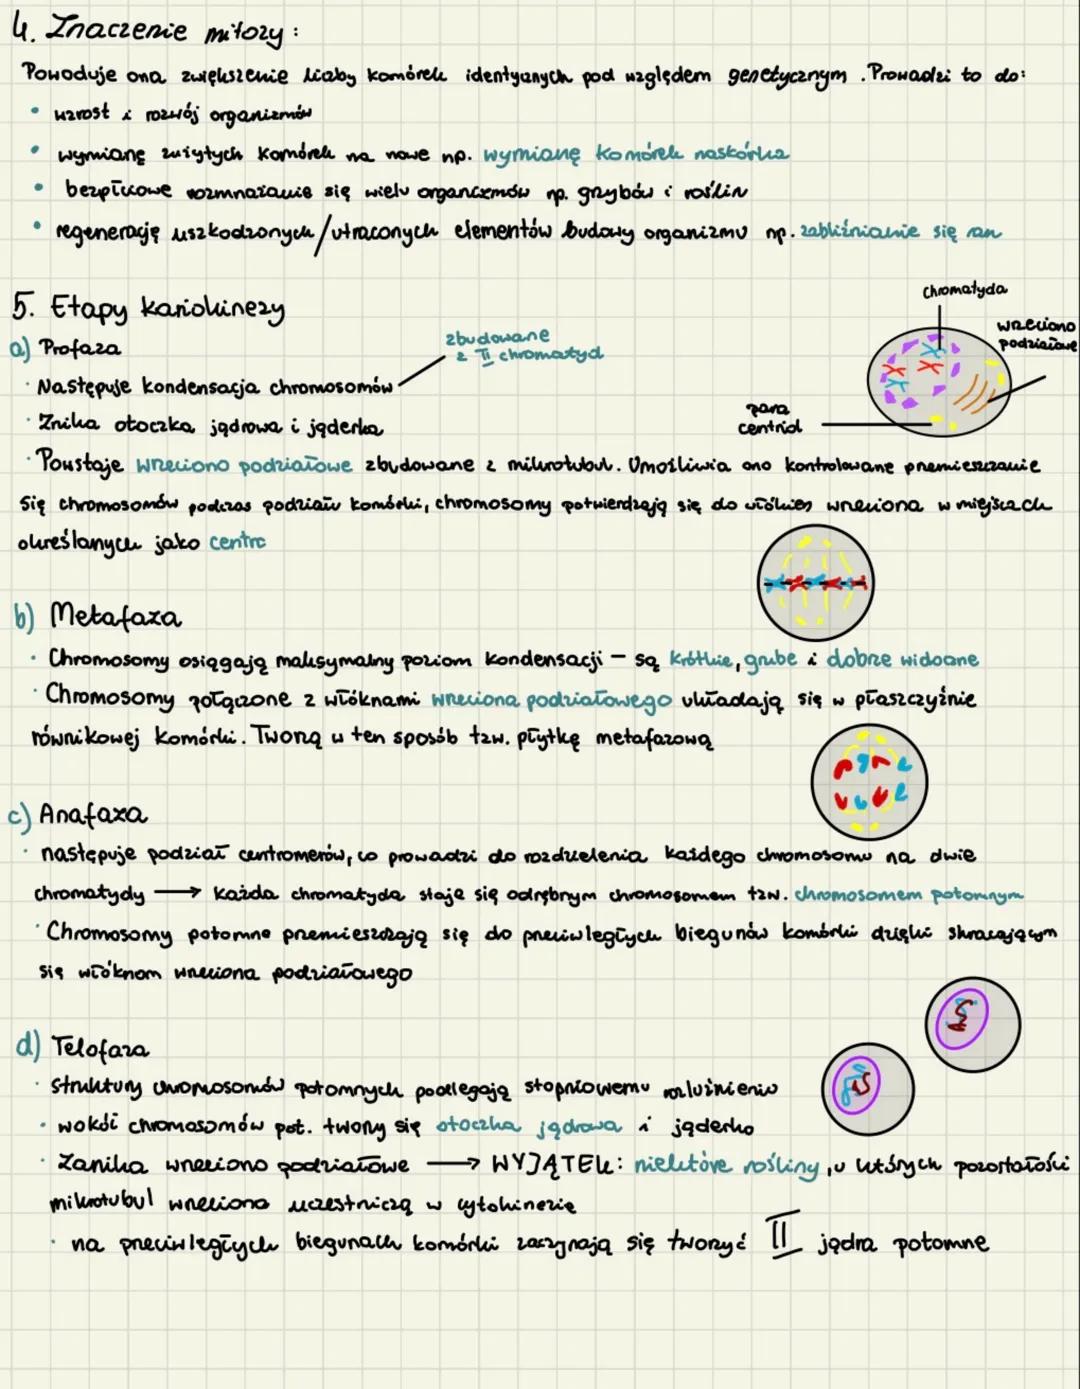 4. Znaczenie mitozy:
Powoduje ona zwiększenie liczby komórek identycznych pod względem genetycznym. Prowadzi to do:
• wzrost i rozwój organizmów
• wymianę zużytych komórek na nowe np. wymianę komórek naskórka
• bezpłciowe rozmnażanie się wielu organizmów np. grzybów i roślin
• regenerację uszkodzonych/utraconych elementów budowy organizmu np. zabliźnianie się ran
chromatyda
5. Etapy kariokinezy
wrzeciono podziałowe
a) Profaza
zbudowane z II chromatyd
· Następuje kondensacja chromosomów
para centriol
· Znika otoczka jądrowa i jąderka
· Powstaje wrzeciono podziałowe zbudowane z mikrotubul. Umożliwia ono kontrolowane przemieszczanie
się chromosomów podczas podziału komórki, chromosomy potwierdzają się do włókien wrzeciona w miejscach
określanych jako centro
b) Metafaza
· Chromosomy osiągają maksymalny poziom kondensacji – są krótkie, grube i dobrze widoczne
· Chromosomy połączone z włóknami wrzeciona podziałowego układają się w płaszczyźnie
równikowej komórki. Tworzą w ten sposób tzw. płytkę metafazową
c) Anafaza
· następuje podział centromerów, co prowadzi do rozdzielenia każdego chromosomu na dwie
chromatydy → każda chromatyda staje się odrębnym chromosomem tzw. chromosomem potomnym
· Chromosomy potomne przemieszczają się do przeciwległych biegunów komórki dzięki skracającym
się włóknom wrzeciona podziałowego
d) Telofaza
· struktury chromosomów potomnych podlegają stopniowemu rozluźnieniu
· wokół chromosomów pot. tworzy się otoczka jądrowa i jąderko
· Zanika wrzeciono podziałowe → WYJĄTEK: niektóre rośliny, u których pozostałości
mikrotubul wrzeciona uczestniczą w cytokinezie
· na przeciwległych biegunach komórki zaczynają się tworzyć II jądra potomne